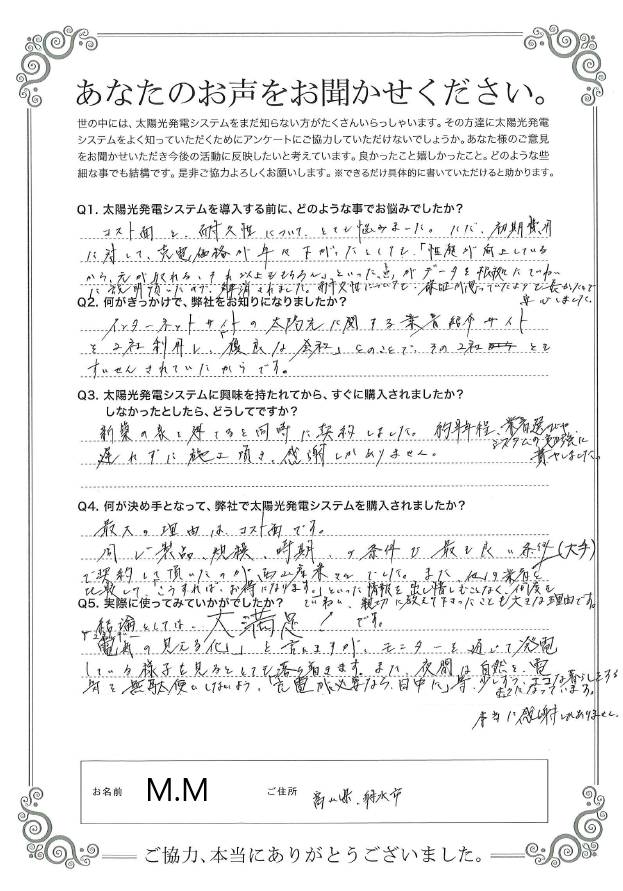 あなたのお声をお聞かせください。
世の中には、太陽光発電システムをまだ知らない方がたくさんいらっしゃいます。その方達に太陽光発電
システムをよく知っていただくためにアンケートにご協力していただけないでしょうか。あなた様のご意見
をお聞かせいただき今後の活動に反映したいと考えています。良かったこと嬉しかったこと。どのような些
細な事でも結構です。是非ご協力よろしくお願いします。※できるだけ具体的に書いていただけると助かります。
Q1. 太陽光発電システムを導入する前に、どのような事でお悩みでしたか?
コスト面と、耐久性について、とても悩みました。ただ、初期費用
に対して、売電価格が年々下がったとしても、「性能が向上している
から、元が取れる、それ以上もちろん」といった点がデータを根拠にていねい
に説明頂いたので、解消されました。耐久性についても、保証が
安心しました。
Q2. 何がきっかけで、弊社をお知りになりましたか?
インターネットサイトの太陽光に関する業者紹介サイト
を2社利用し、「優良な会社」とのことで、その2社とも
すいせんされていたからです。
Q3. 太陽光発電システムに興味を持たれてから、すぐに購入されましたか?
しなかったとしたら、どうしてですか?
新築の家を建てると同時に契約しました。約半年程、業者選びや、
システムの勉強に
費やしました。
遅れずに施工頂き、感謝しかありません。
Q4. 何が決め手となって、弊社で太陽光発電システムを購入されましたか?
最大の理由は、コスト面です。
同じ製品、規模、時期、の条件で最も良い条件(大手)
で契約して頂いたのが、西山産業さんでした。また、他の業者と
比較して、「こうすれば、お得になります。」といった情報を出し惜しむことなく、何度も
ていねい、親切に教えて下さったことも大きな理由です。
Q5. 実際に使ってみていかがでしたか?
結論としては、大満足!です。
「電気の見える化」と言いますが、モニターを通じて発電
している様子を見るととても落ち着きます。また、夜間は自然と、電
気を無駄使いしないよう、「充電が必要なら、日中に」等、少しずつ、エコな暮らしをする
様になっています。
本当に感謝しかありません。
お名前 M.M ご住所 富山県、射水市
ご協力、本当にありがとうございました。